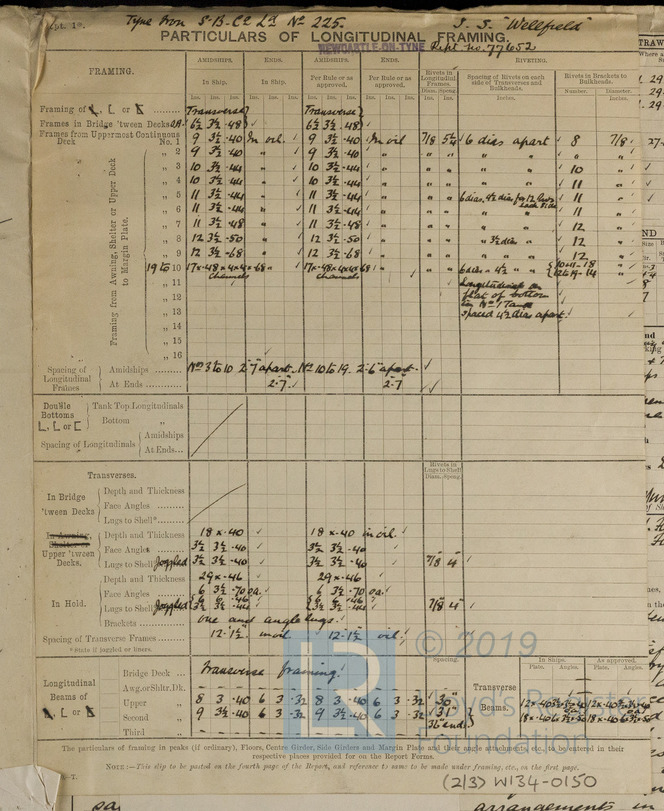 Rpt. 1*. Tyne Iron S.B. Co Ld No 225. S.S. "Wellfield"
PARTICULARS OF LONGITUDINAL FRAMING.
NEWCASTLE-ON-TYNE Rept no. 77652
FRAMING. AMIDSHIPS. ENDS. AMIDSHIPS. ENDS. RIVETING.
In Ship. In Ship. Per Rule or as approved. Per Rule or as approved. Rivets in Longitudinal Frames. Spacing of Rivets on each side of Transverses and Bulkheads. Rivets in Brackets to Bulkheads.
Ins. Ins. Ins. Ins. Ins. Ins. Ins. Ins. Ins. Ins. Ins. Ins. Diam. Spcng. Ins. Ins. Inches. Number. Diameter. Ins.
Framing of L, L or [ Transverse Transverse
Frames in Bridge 'tween Decks 6½ 3½ .48 6½ 3½ .48
Frames from Uppermost Continuous Deck No. 1 9 3½ .40 In oil. 9 3½ .40 In oil 7/8 5¼ 6 dias apart 8 7/8
" 2 9 3½ .40 " 9 3½ .40 " " " " "
" 3 10 3½ .44 " 10 3½ .44 " " " " 10 "
" 4 10 3½ .44 " 10 3½ .44 " " " " 11 "
" 5 11 3½ .44 " 11 3½ .44 " 11 "
" 6 11 3½ .44 " 11 3½ .44 " " " " 11 "
" 7 11 3½ .48 " 11 3½ .48 " " " " 12 "
" 8 12 3½ .50 " 12 3½ .50 " " 3½ dias " 12 "
" 9 12 3½ .68 " 12 3½ .68 " " " " 12 "
19 to 10 17 × .48 × 4 × 4 × .68 " 17 × .48 × 4 × 4 × .68 " 6 dias " 4½ " "
" 11 Channels Channels Longitudinals on
" 12 flat of bottom
" 13 in No 1 Tank
" 14 spaced 4½ dias apart.
" 15
" 16
Framing from Awning, Shelter or Upper Deck to Margin Plate.
Spacing of Longitudinal Frames Amidships No 3 to 10 2'-7" apart. No 10 to 19. 2'-6" apart.
At Ends 2'.7" 2'.7
Double Bottoms L, L or [ Tank Top Longitudinals
Bottom "
Spacing of Longitudinals Amidships
At Ends
Transverses. Rivets in Lugs to Shell Diam. Spcng.
In Bridge 'tween Decks Depth and Thickness
Face Angles
Lugs to Shell*
In Awning, Shelter or Upper 'tween Decks. Depth and Thickness 18 × .40 18 × .40 in oil.
Face Angles 3½ 3½ .40 3½ 3½ .40
Lugs to Shell* Joggled 3½ 3½ .40 3½ 3½ .40 7/8 4"
In Hold. Depth and Thickness 29 × .46 29 × .46
Face Angles 6 3½ .70 oa. 6 3½ .70 oa.
Lugs to Shell* Joggled 3½ 3½ .44 3½ 3½ .44 7/8 4"
Brackets one and angle lugs.
Spacing of Transverse Frames 12'-1½ in oil 12'-1½ oil
*State if joggled or liners.
Longitudinal Beams of L, L or [ Bridge Deck Transverse framing. Spacing. Transverse Beams. In Ships. As approved.
Plate. Angles. Plate. Angles.
Awg. or Shltr. Dk.
Upper " 8 3 .40 6 3 .32 8 3 .40 6 3 .32 30" 12 × .40 3½ 3½ .40 12 × .40 3½ 3½ .40
Second " 9 3½ .40 6 3 .32 9 3½ .40 6 3 .32 31" 18 × .40 6 3½ .50 18 × .40 6 3½ .50
Third " 36 ends
The particulars of framing in peaks (if ordinary), Floors, Centre Girder, Side Girders and Margin Plate and their angle attachments, etc., to be entered in their
respective places provided for on the Report Forms.
NOTE:—This slip to be pasted on the fourth page of the Report, and reference to same to be made under framing, etc., on the first page.
(2/3) W134-0150
© 2019
Lloyd's Register
Foundation